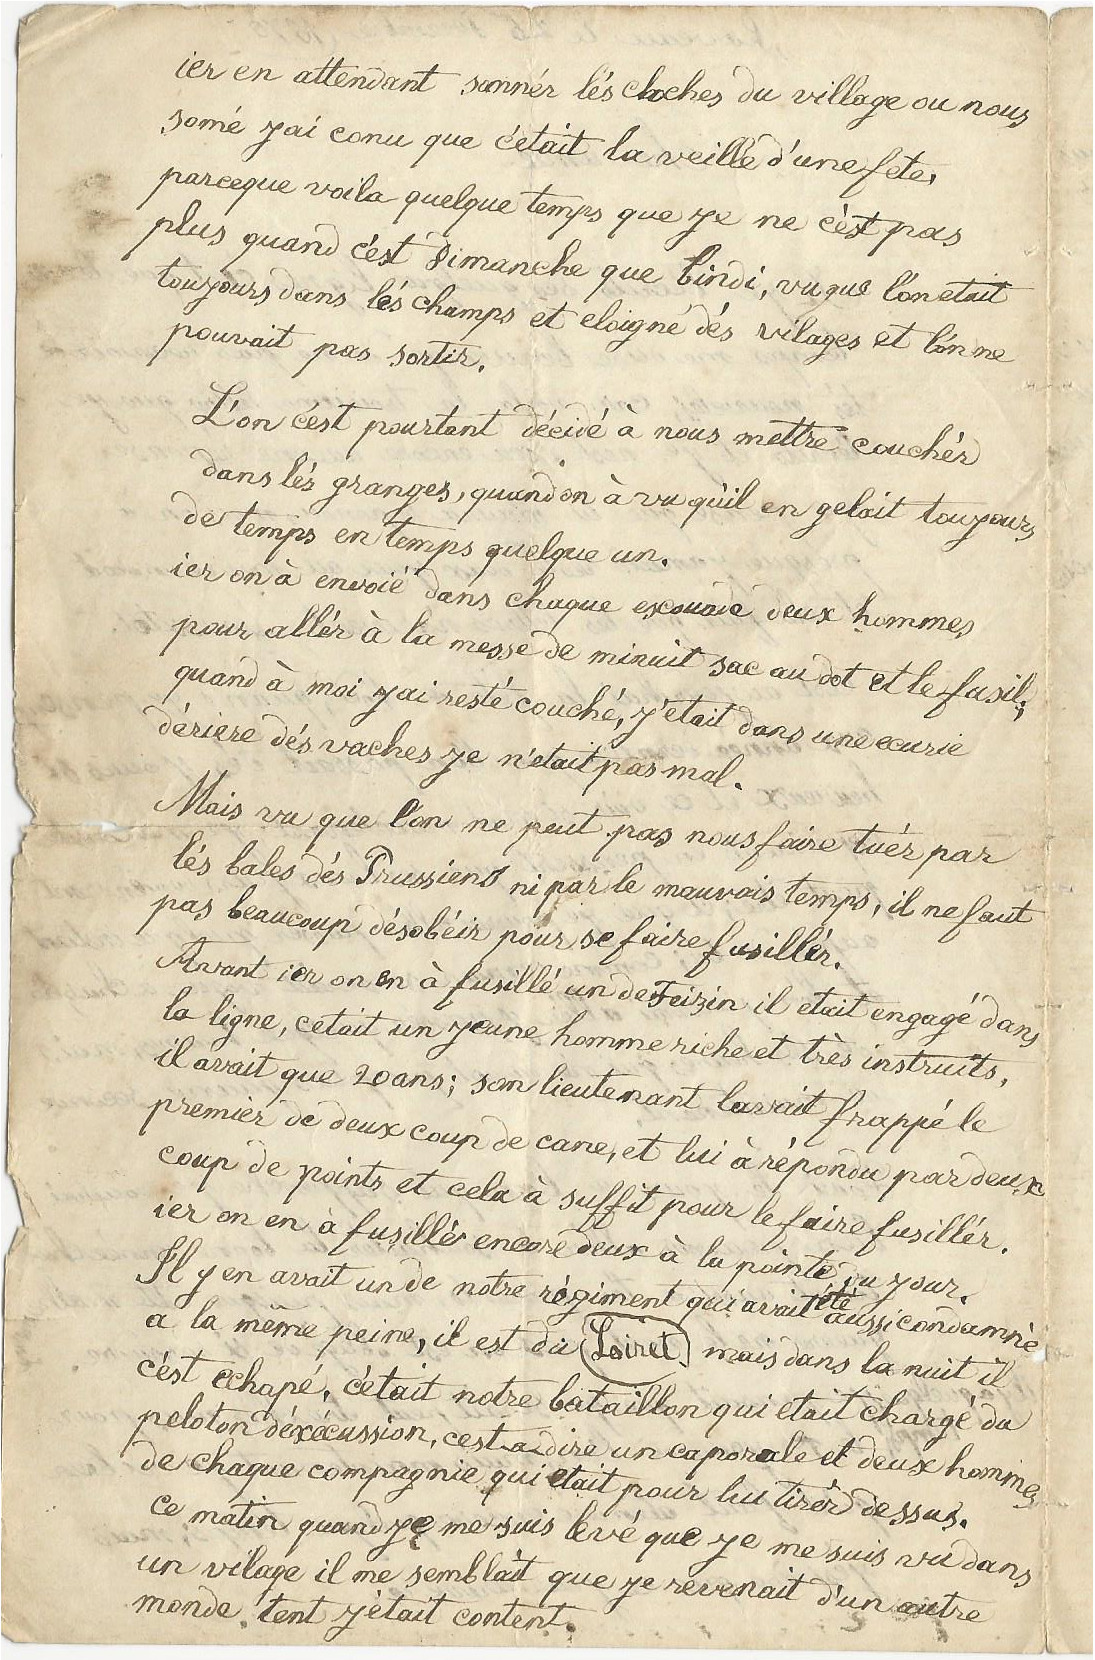 ier en attendant sonnér lés cloches du village ou nous
somé jai conu que c'etait la veille d'une fete,
parceque voila quelque temps que je ne c'est pas
plus quand c'est Dimanche que lindi, vu que l'on etait
toujours dans lés champs et eloigné dés vilages et l'on ne
pouvait pas sortir.
L'on c'est pourtant décidé à nous mettre couchér
dans lés granges, quand on à vu qu'il en gelait toujours
de temps en temps quelque un.
ier on à envoié dans chaque escouade deux hommes
pour allér à la messe de minuit sac au dot et le fusil;
quand à moi jai resté couché, j'etait dans une ecurie
dériere dés vaches je n'etait pas mal.
Mais vu que l'on ne peut pas nous faire tuér par
lés bales dés Prussiens ni par le mauvais temps, il ne faut
pas beaucoup désobéir pour se faire fusillér.
Avant ier on en à fusillé un de Feizin il etait engagé dans
la ligne, cetait un jeune homme riche et très instruits,
il avait que 20 ans; son lieutenant lavait frappé le
premier de deux coup de cane, et lui à répondu par deux
coup de points et cela à suffit pour le faire fusillér.
ier on en à fusillér encore deux à la pointe du jour.
Il y en avait un de notre régiment qui avait été aussi condamnè
a la même peine, il est du Loiret. mais dans la nuit il
c'est echapé, c'etait notre bataillon qui etait chargé du
peloton déxécussion, cest a dire un caporale et deux hommes
de chaque compagnie qui etait pour lui tirér dessus.
ce matin quand je me suis levé que je me suis vu dans
un vilage il me semblait que je revenait d'un autre
monde tent j'etait content.